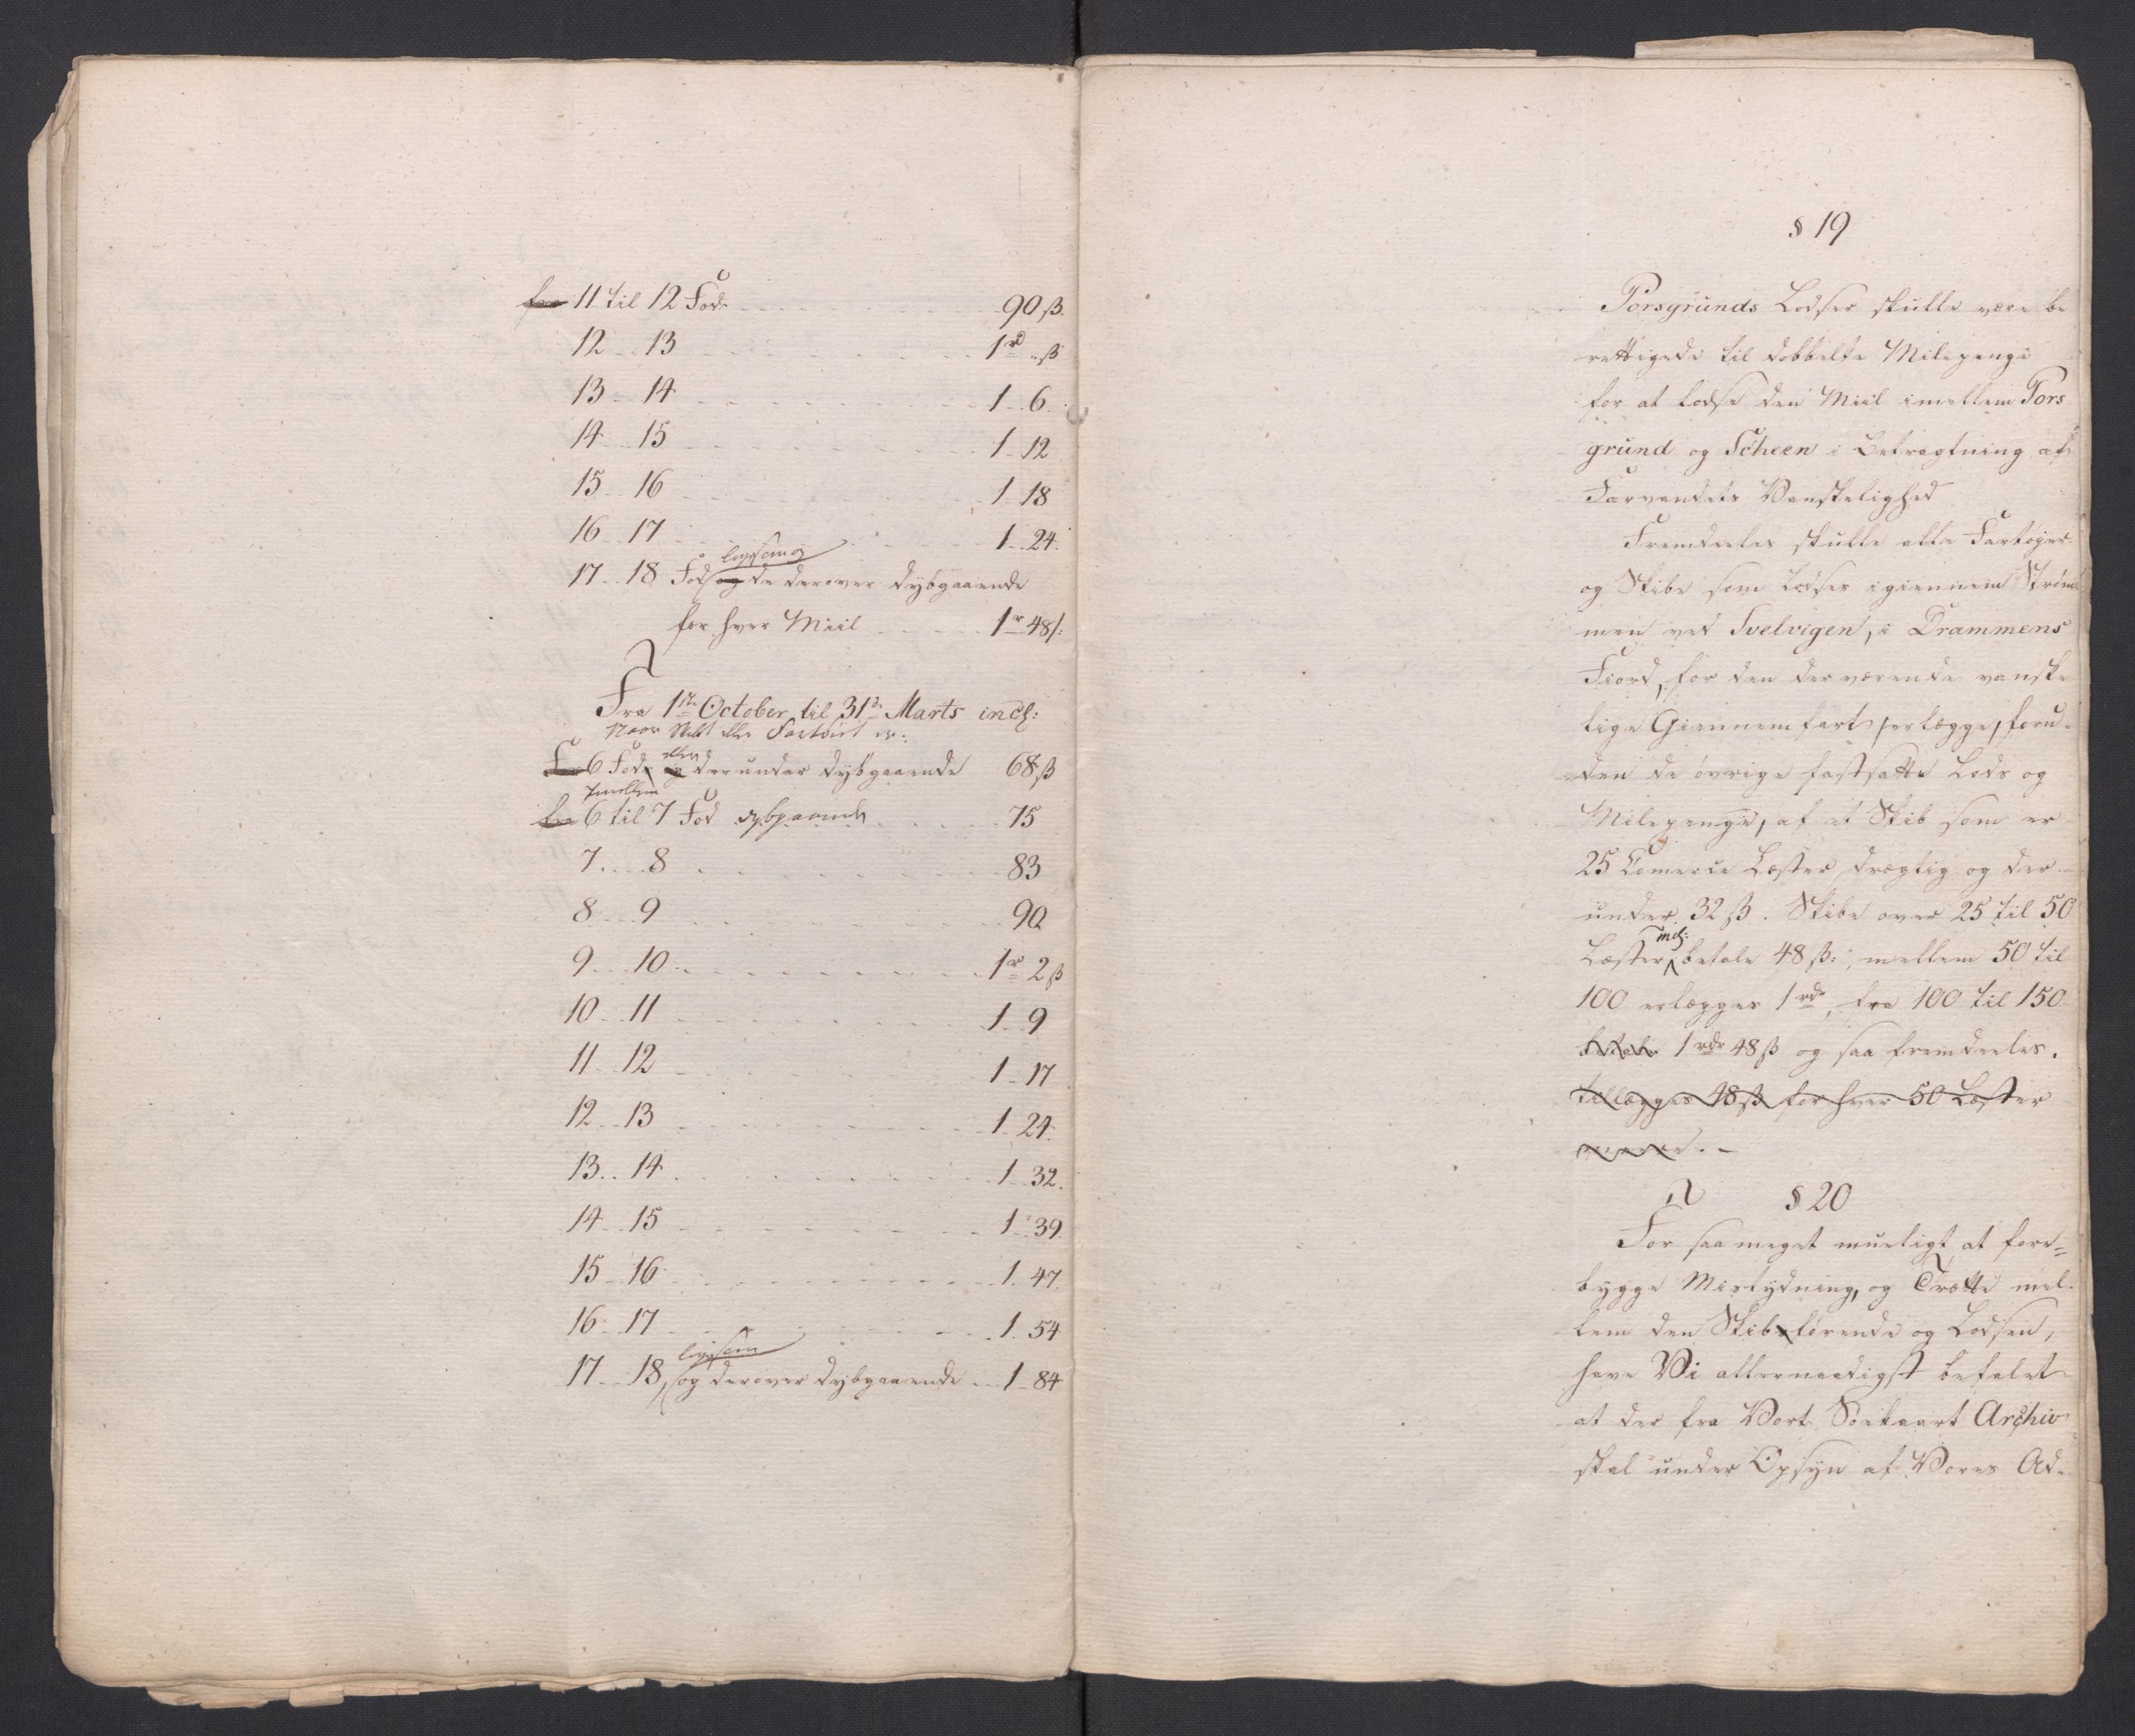 fra 11 til 12 Fod 90 ß.
12 13 1 rd „ ß
13 14 1 6
14 15 1 12
15 16 1 18
16 17 1 24
ligesom og
17 18 Fod og de derover dybgaaende
for hver Miil 1 r 48 ß:
Fra 1te October til 31te Marts incl:
Naar Skibet eller Fartøiet er:
eller
For 6 Fod og derunder dybgaaende 68 ß
imellem
fra 6 til 7 Fod dybgaaende 75
7 8 83
8 9 90
9 10 1 r 2 ß
10 11 1 9
11 12 1 17
12 13 1 24
13 14 1 32
14 15 1 39
15 16 1 47
16 17 1 54
ligesom
17 18 og derover dybgaaende 1 84
§ 19
Porsgrunds Lodser skulle være be
rettigede til dobbelte Milepenge
for at lodse den Miil imellem Pors
grund og Scheen i Betragtning af
Farvandets Vanskelighed
Fremdeeles skulle alle Fartøjer
og Skibe som lodses igiennem Strøm
men ved Svelvigen, i Drammens
Fiord, for den derværende vanske
lige Giennemfart erlægge, foru-
den de øvrige fastsatte Lods og
Milepenge, af et Skib som er
25 Comerce Læster drægtig og der-
under 32 ß. Skibe over 25 til 50
incl:
Læster betale 48 ß:, mellem 50 til
100 erlægges 1 rdr, fra 100 til 150
betale 1 rdr 48 ß og saa fremdeeles.
tillægges 48 ß for hver 50 Læster
meere. -
§ 20
For saa meget mueligt at fore-
bygge Mistydning, og Trætte mel-
lem den Skibsførende og Lodsen,
have Vi allernaadigst befalet
at der fra Vort Søekaart Archiv
skal under Opsyn af Vores Ad-